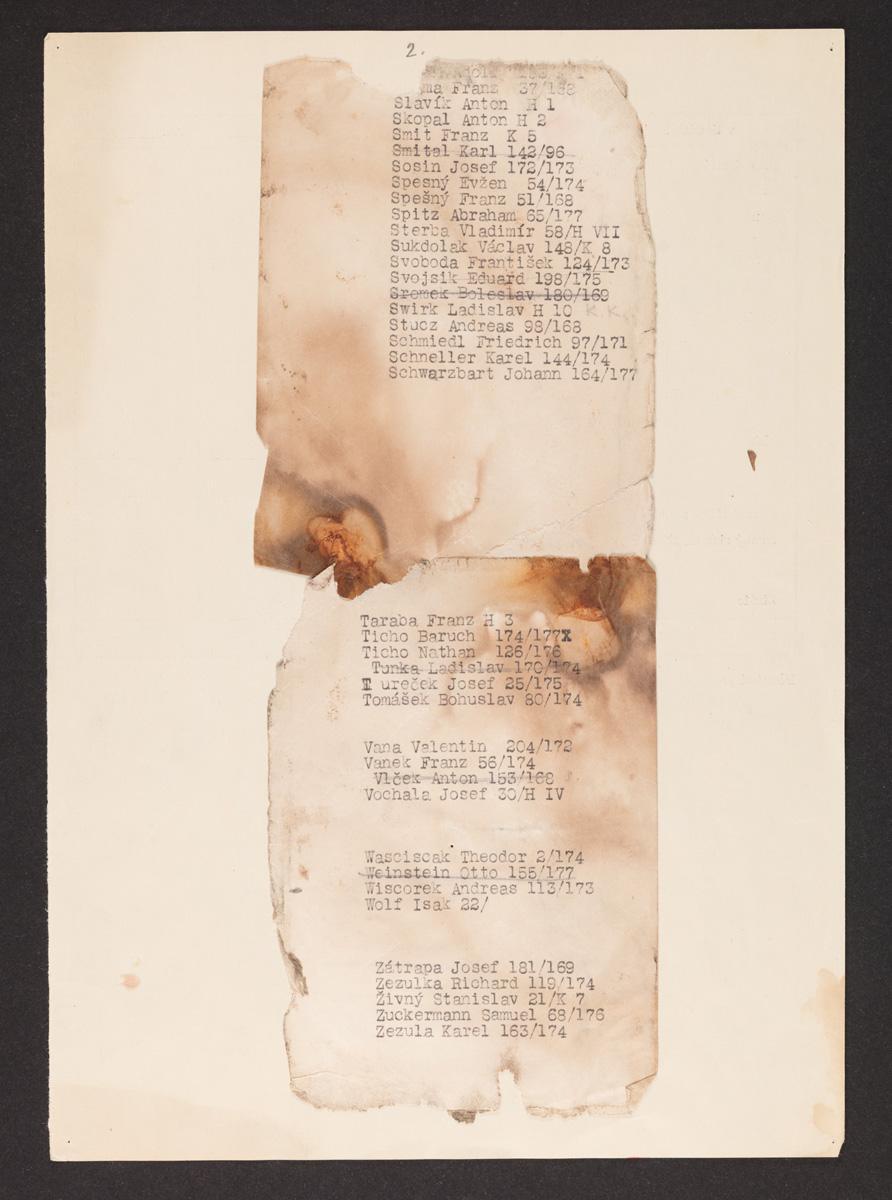 2.
ma Franz 37/168
Slavík Anton H 1
Skopal Anton H 2
Smit Franz K 5
Smital Karl 142/96
Sosin Josef 172/173
Spesný Evžen 54/174
Spešný Franz 51/168
Spitz Abraham 65/177
Sterba Vladimír 58/H VII
Sukdolak Václav 148/K 8
Svoboda František 124/173
Svojsik Eduard 198/175
Sromek Boleslav 180/169
Swirk Ladislav H 10 K.K.
Stucz Andreas 98/168
Schmiedl Friedrich 97/171
Schneller Karel 144/174
Schwarzbart Johann 164/177
Taraba Franz H 3
Ticho Baruch 174/177X
Ticho Nathan 126/176
Tunka Ladislav 170/174
T ureček Josef 25/175
Tomášek Bohuslav 80/174
Vana Valentin 204/172
Vanek Franz 56/174
Vlček Anton 153/168
Vochala Josef 30/H IV
Wasciscak Theodor 2/174
Weinstein Otto 155/177
Wiscorek Andreas 113/173
Wolf Isak 22/
Zátrapa Josef 181/169
Zezulka Richard 119/174
Živný Stanislav 21/K 7
Zuckermann Samuel 68/176
Zezula Karel 163/174